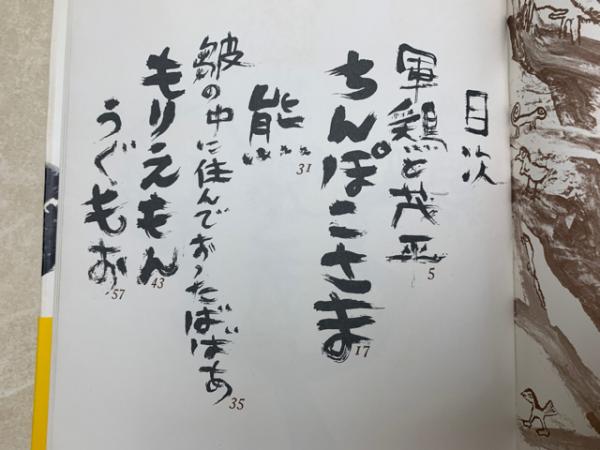 目次
軍鶏と茂平
5
ちんぽこさま
17
熊…
31
皺の中に住んでおったばばあ
35
もりえもん
43
うぐもお
57